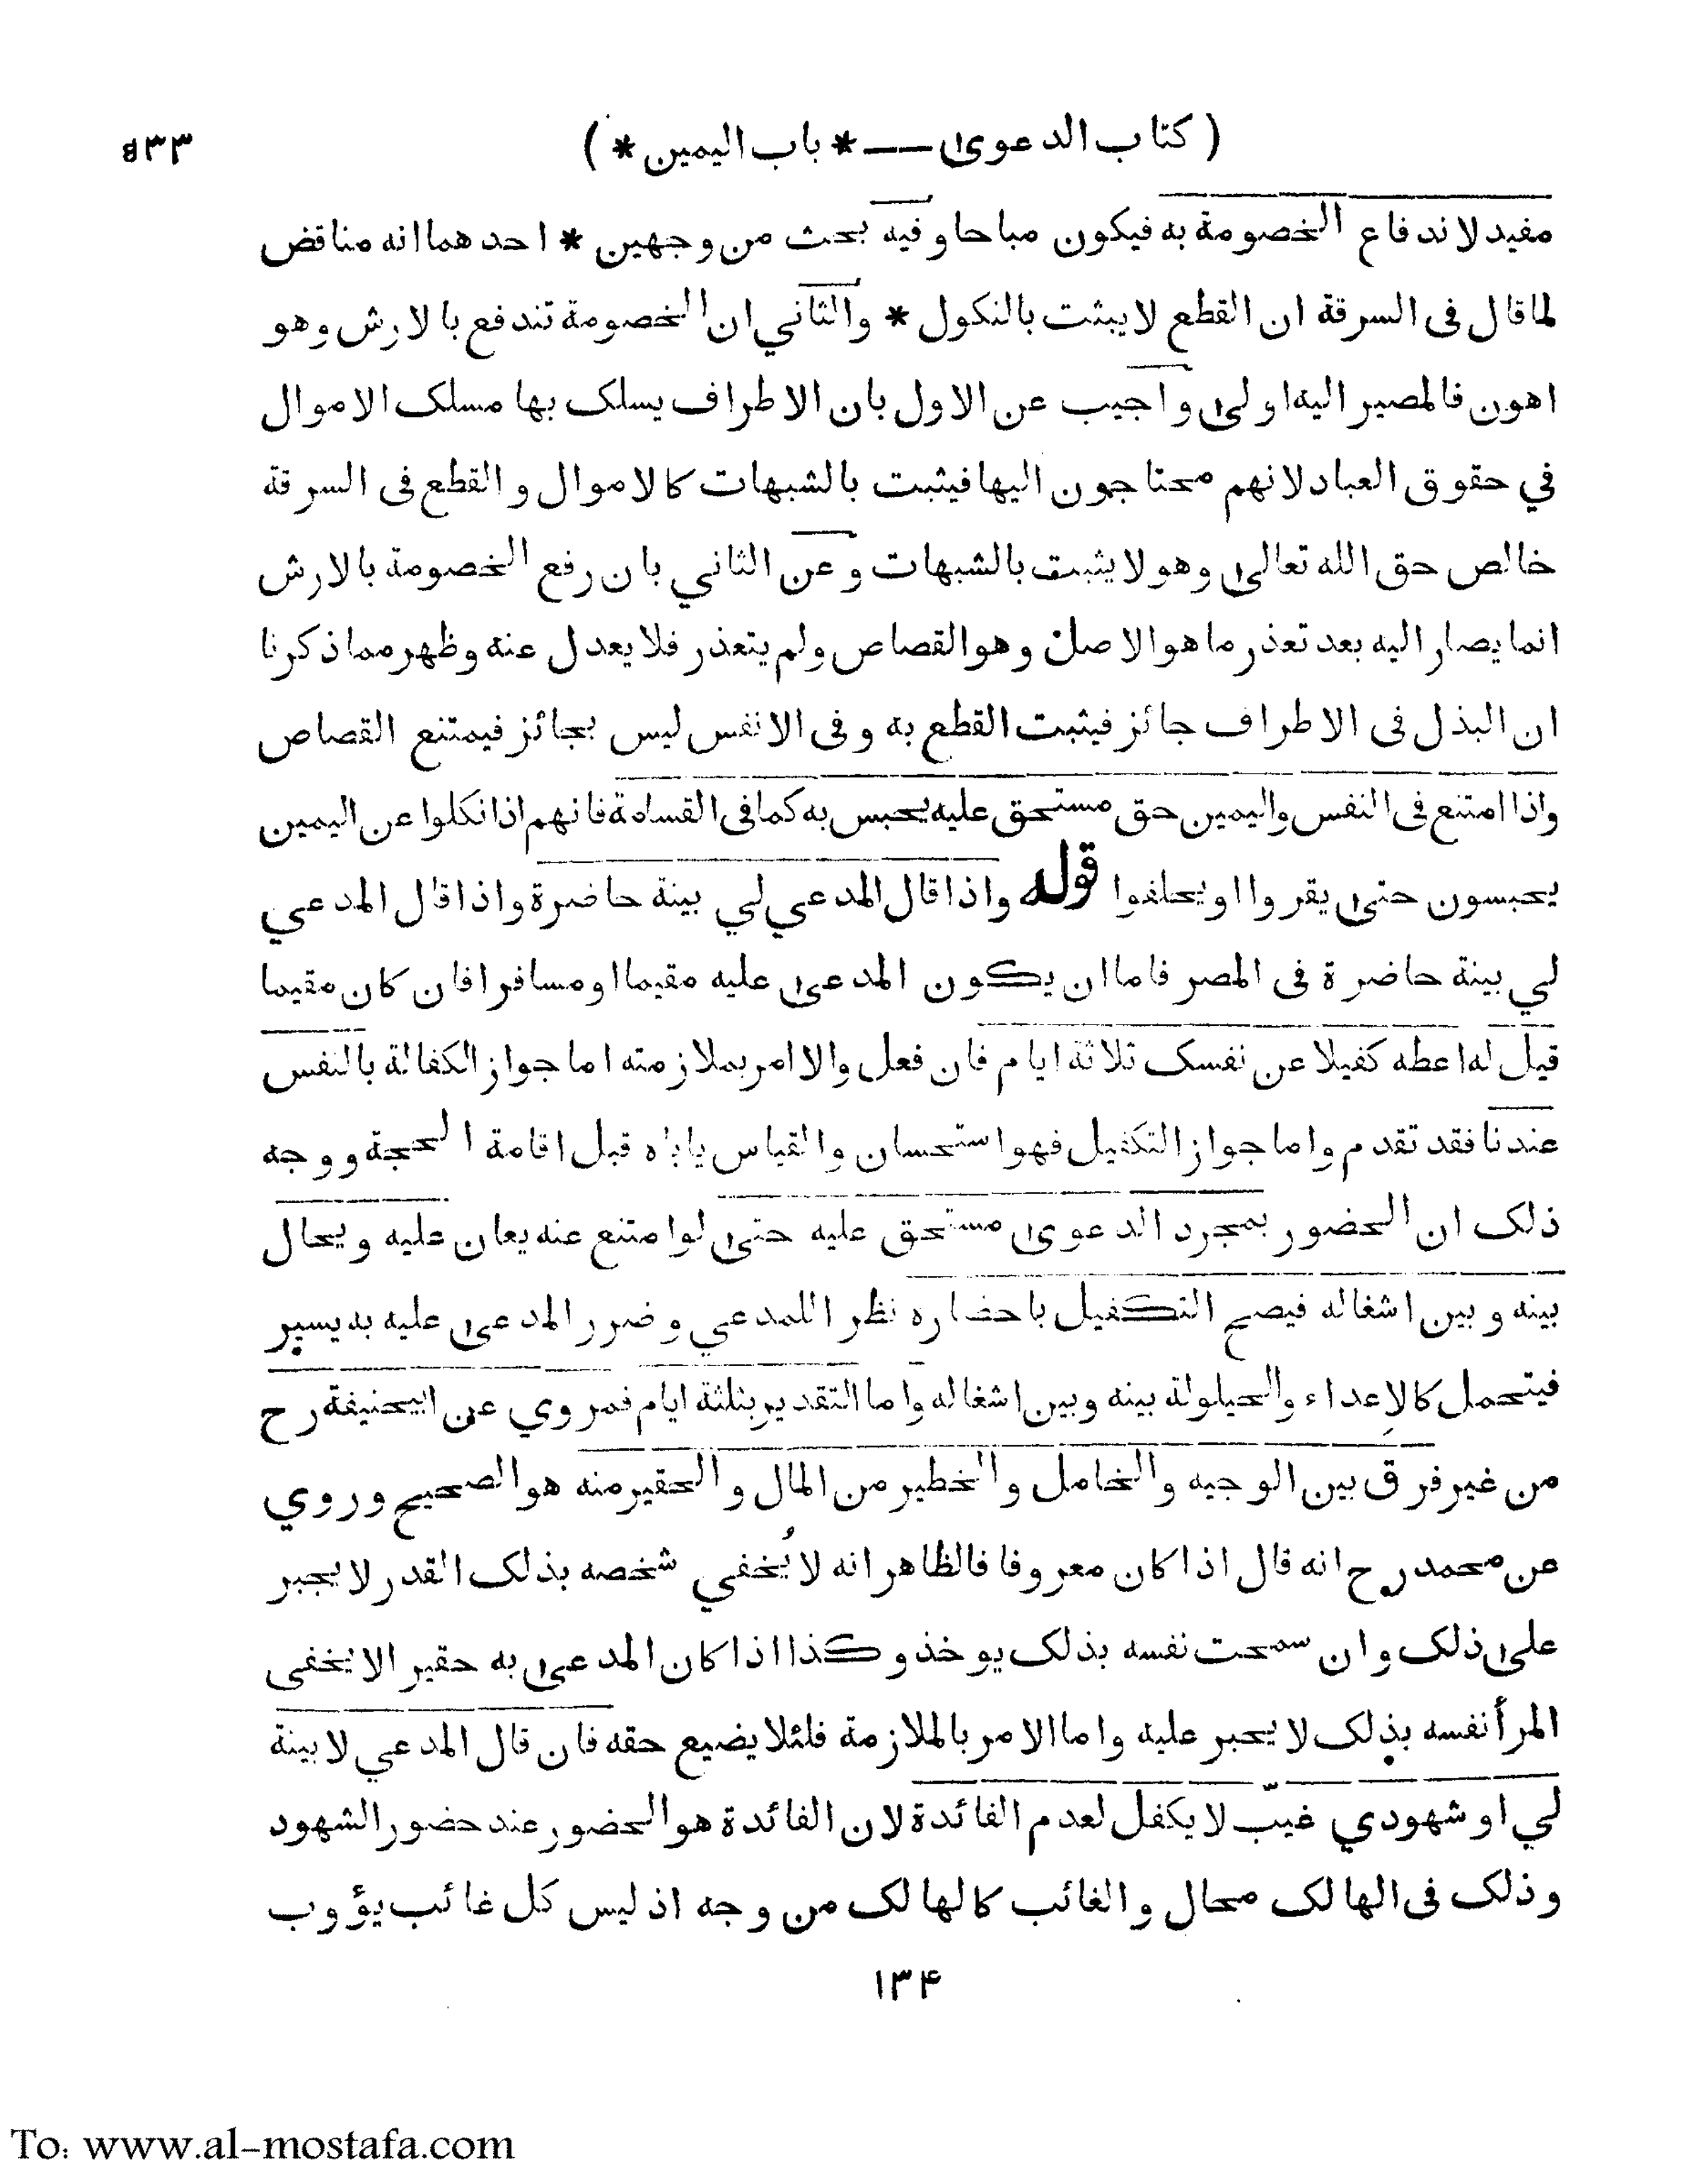 ( كتاب الدعوى —— * باب اليمين * )
٥٣٣
مفيد لاندفاع الخصومة به فيكون مباحا وفيه بحث من وجهين * احدهما انه مناقض
لما قال فى السرقة ان القطع لا يبثت بالنكول * والثاني ان الخصومة تندفع بالارش وهو
اهون فالمصير اليه اولى واجيب عن الاول بان الاطراف يسلك بها مسلك الاموال
في حقوق العباد لانهم محتاجون اليها فيثبت بالشبهات كالاموال والقطع فى السرقة
خالص حق الله تعالى وهو لا يثبت بالشبهات وعن الثاني بان رفع الخصومة بالارش
انما يصار اليه بعد تعذر ما هو الاصل وهو القصاص ولم يتعذر فلا يعدل عنه وظهر مما ذكرنا
ان البذل فى الاطراف جائز فيثبت القطع به وفى الانفس ليس بجائز فيمتنع القصاص
واذا امتنع فى النفس واليمين حق مستحق عليه يحبس به كما فى القسامة فانهم اذا نكلوا عن اليمين
يحبسون حتى يقروا او يحلفوا قوله واذا قال المدعي لي بينة حاضرة واذا قال المدعي
لي بينة حاضرة فى المصر فاما ان يكون المدعى عليه مقيما او مسافرا فان كان مقيما
قيل له اعطه كفيلا عن نفسك ثلاثة ايام فان فعل والا امر بملازمته اما جواز الكفالة بالنفس
عندنا فقد تقدم واما جواز التكفيل فهو استحسان والقياس ياباه قبل اقامة الحجة ووجه
ذلك ان الحضور بمجرد الدعوى مستحق عليه حتى لو امتنع عنه يعان عليه ويحال
بينه وبين اشغاله فيصح التكفيل باحضاره نظرا للمدعي وضرر المدعى عليه به يسير
فيتحمل كالإعداء والحيلولة بينه وبين اشغاله واما التقدير بثلثة ايام فمروي عن ابيحنيفة رح
من غير فرق بين الوجيه والخامل والخطير من المال والحقير منه هو الصحيح وروي
عن محمد رح انه قال اذا كان معروفا فالظاهر انه لا يُخفي شخصه بذلك القدر لا يجبر
على ذلك وان سمحت نفسه بذلك يوخذ وكذا اذا كان المدعى به حقيرا لا يخفى
المرأ نفسه بذلك لا يجبر عليه واما الامر بالملازمة فلئلا يضيع حقه فان قال المدعي لا بينة
لي او شهودي غيبّ لا يكفل لعدم الفائدة لان الفائدة هو الحضور عند حضور الشهود
وذلك فى الهالك محال والغائب كالهالك من وجه اذ ليس كل غائب يؤوب
١٣۴
To: www.al-mostafa.com